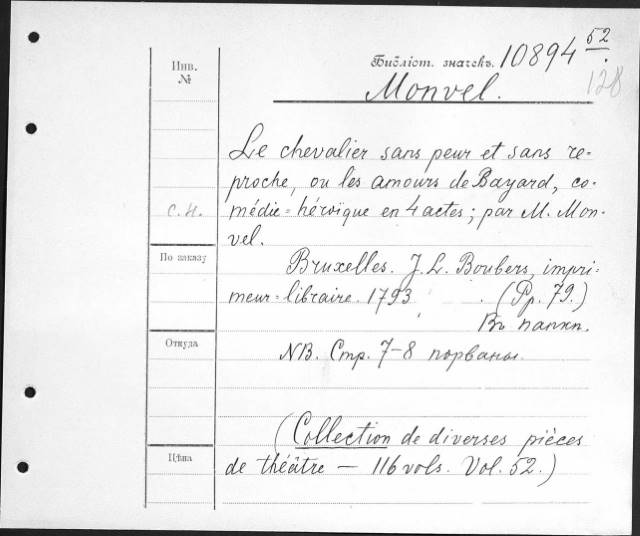 Инв.
№
Библіот. значекъ. 10894 52
128
Monvel.
Le chevalier sans peur et sans re-
proche, ou les amours de Bayard, co-
С. Н. médie=héroïque en 4 actes; par M. Mon-
vel.
По заказу
Bruxelles. J. L. Boubers, impri-
meur=libraire. 1793. (Pp. 79.)
Въ папкѣ.
Откуда
NB. Стр. 7-8 порваны.
(Collection de diverses pièces
Цѣна
de théâtre — 116 vols. Vol. 52.)